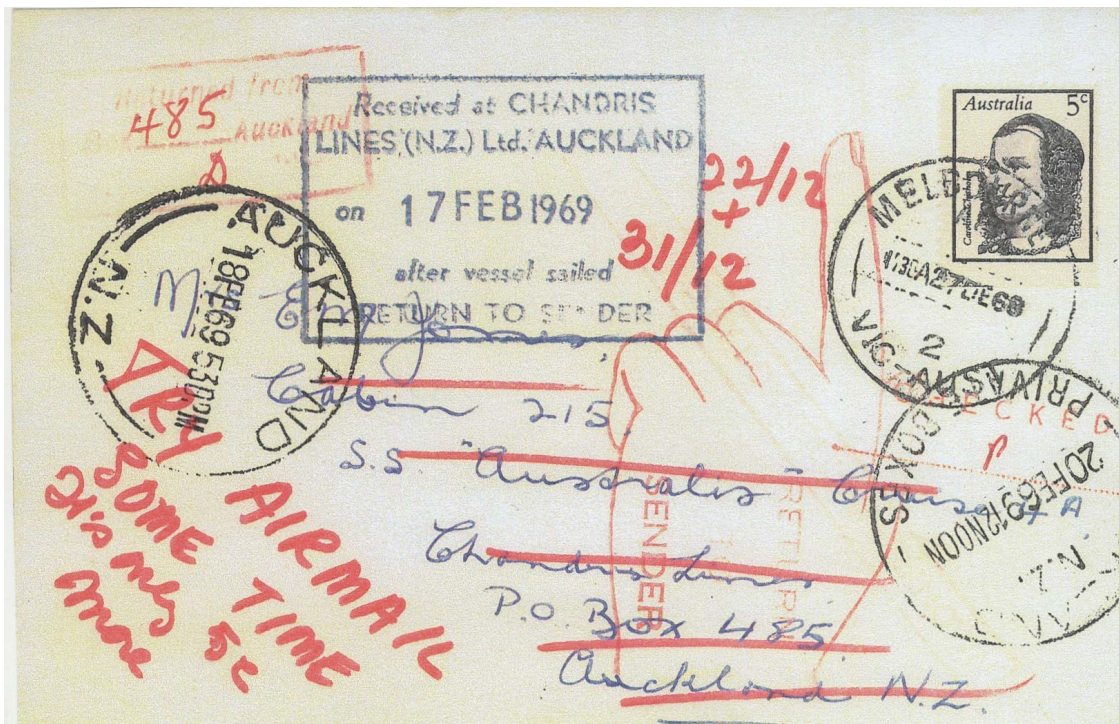 Returned from
Box 485 Auckland
Received at CHANDRIS
LINES (N.Z.) Ltd. AUCKLAND
on 17 FEB 1969
after vessel sailed
RETURN TO SENDER
22/12
+
31/12
Australia 5c
MELBOURNE
1130A 27DE68
2
VIC-AUST
AUCKLAND
18FE69 530PM
N.Z.
CHECKED
PRIVATE BOXES
20FE69 12NOON
N.Z.
Jones,
Cabin 215
S.S. "Australis" Cruise
Chandris Lines
P.O. Box 485
Auckland N.Z.
RETURN
TO
SENDER
TRY
AIRMAIL
SOME TIME
It's only 5c
more